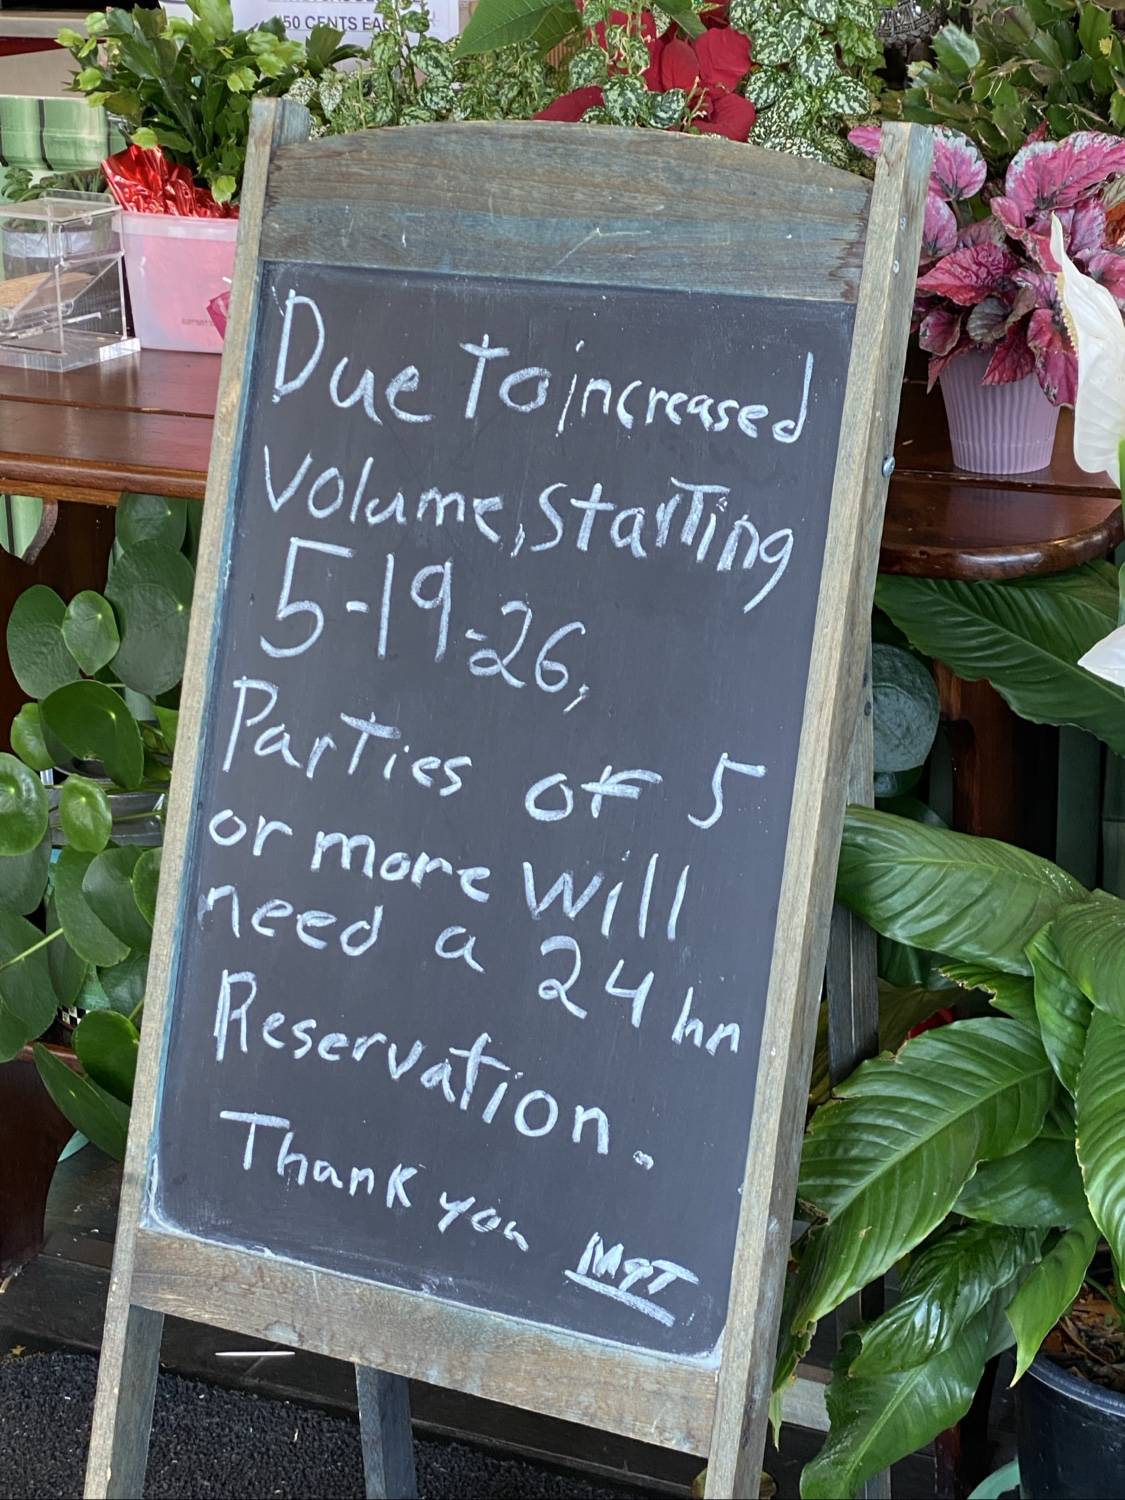 50 CENTS EA
Due to increased
volume, starting
5-19-26,
Parties of 5
or more will
need a 24 hr
Reservation.
Thank you MGT